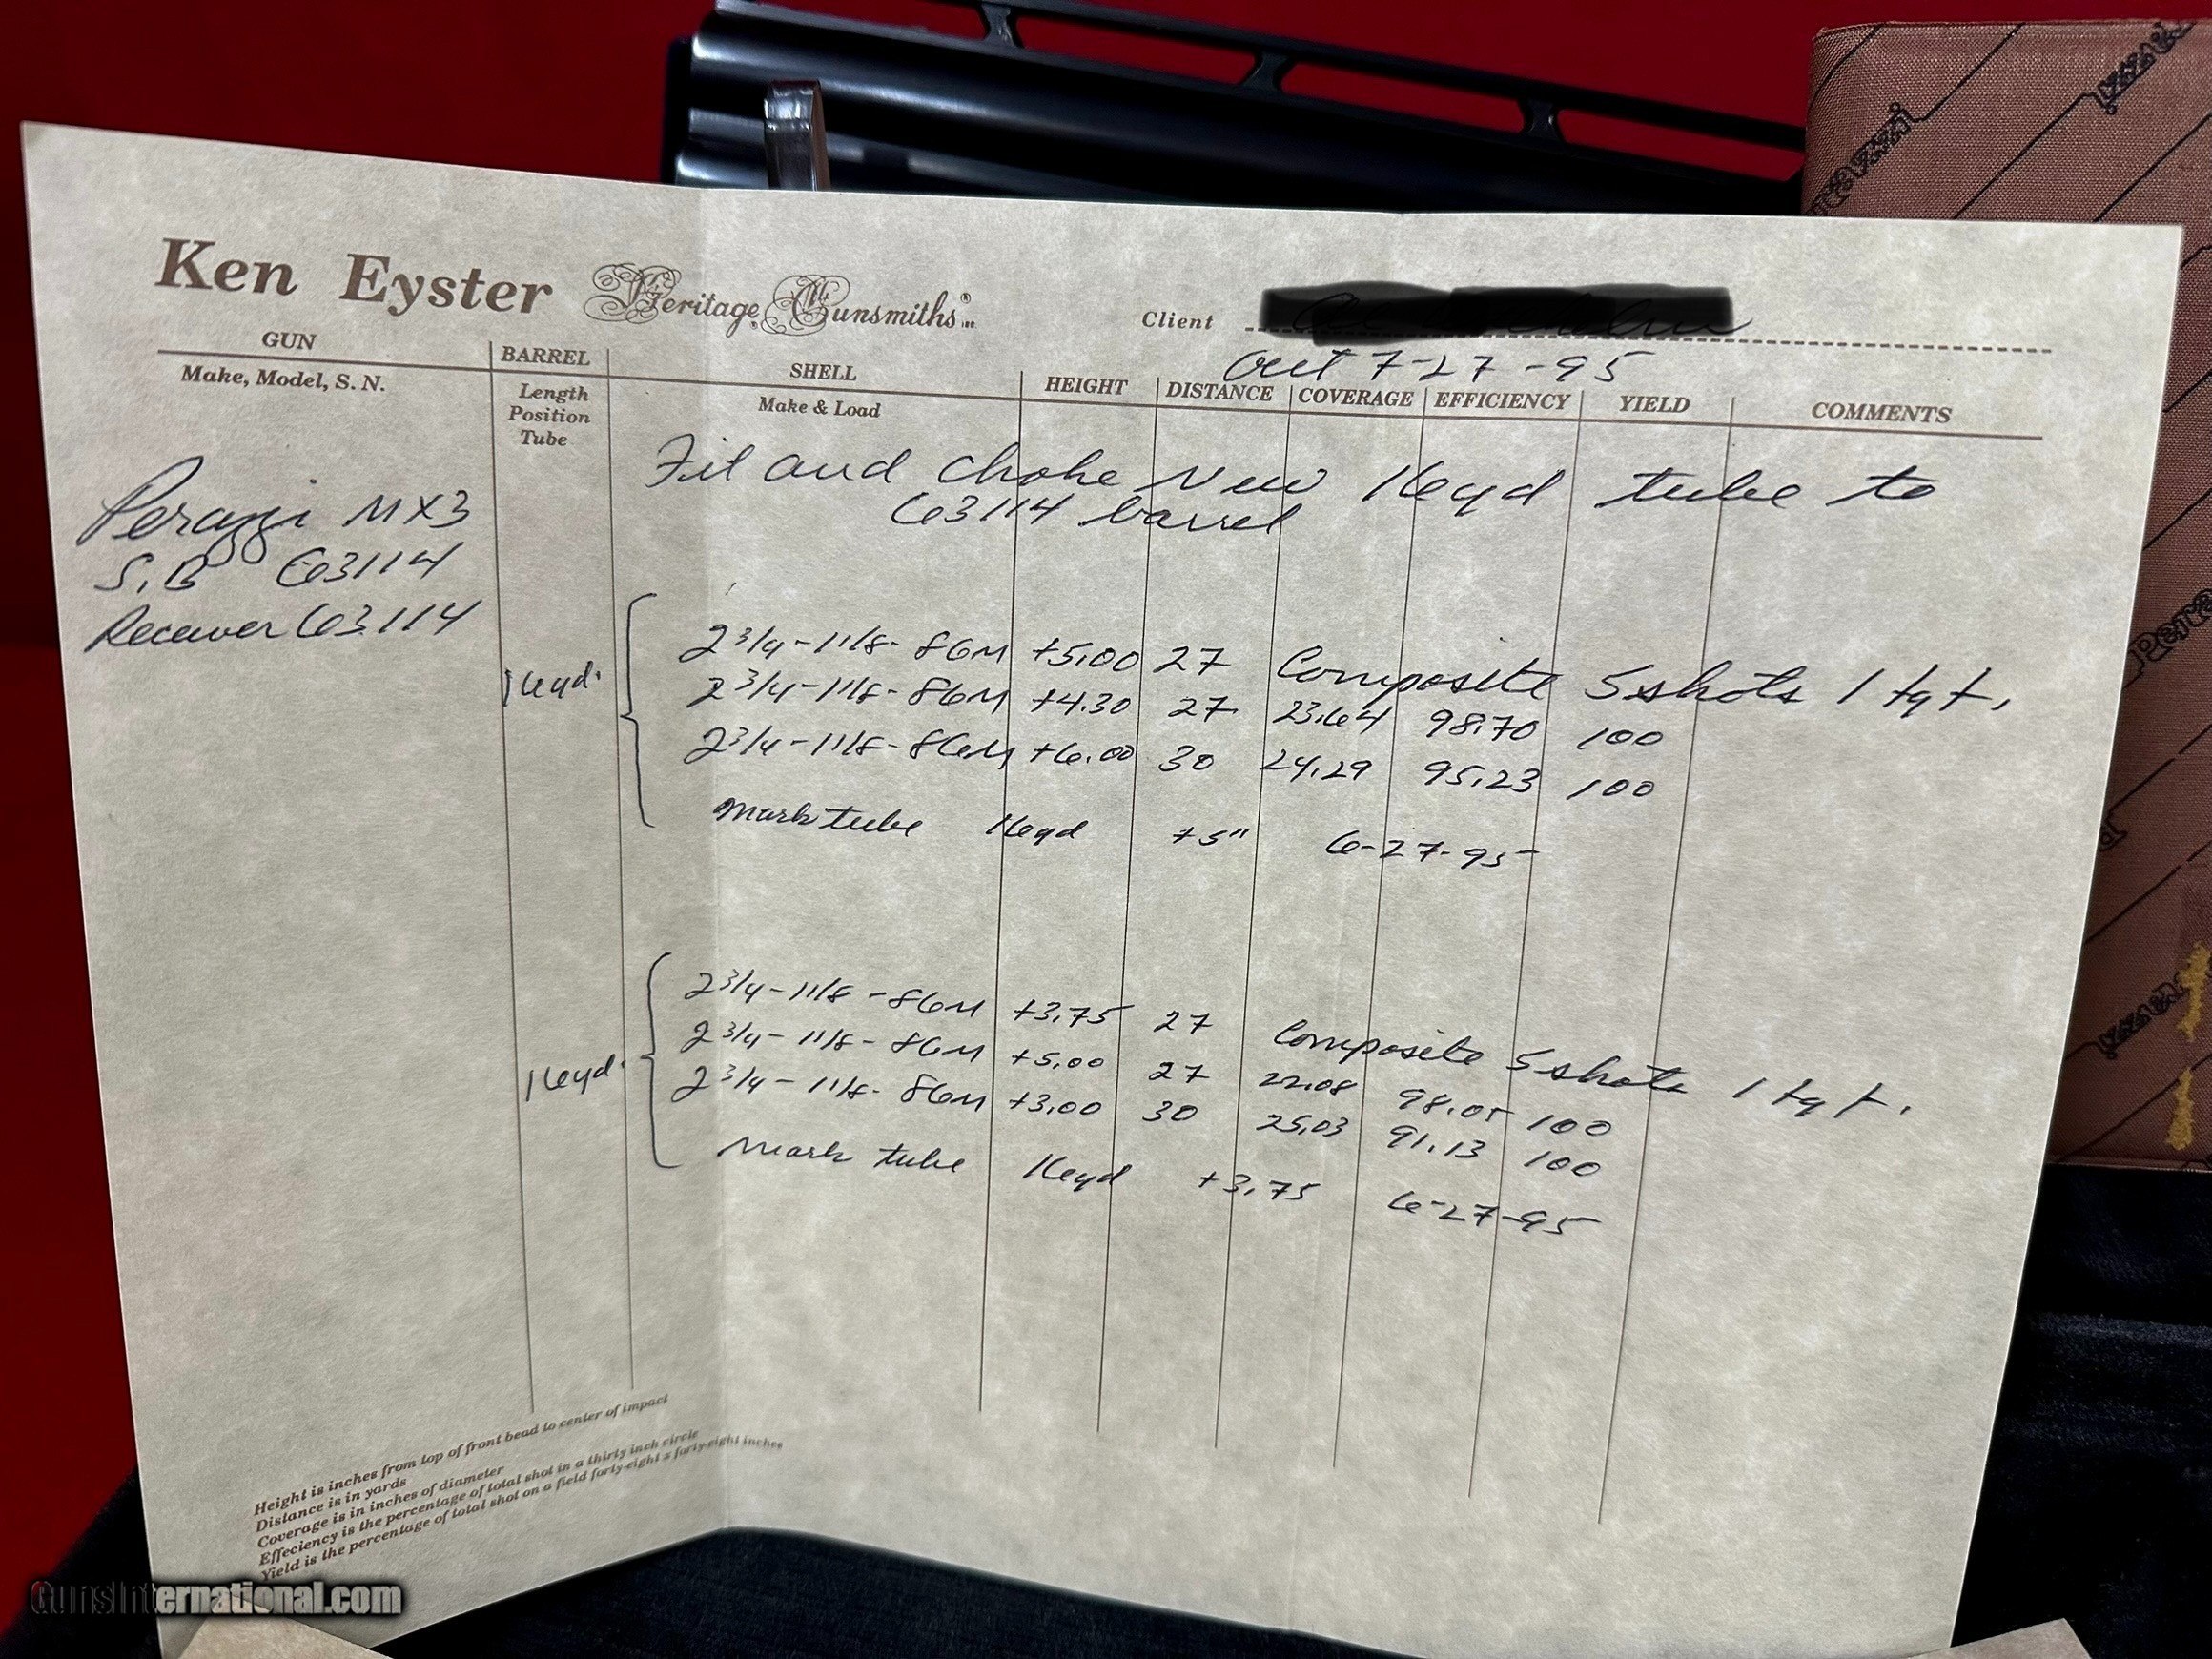 Ken Eyster Heritage Gunsmiths Inc.
Client
Out 7-27-95
GUN BARREL SHELL HEIGHT DISTANCE COVERAGE EFFICIENCY YIELD COMMENTS
Make, Model, S. N. Length Position Tube Make & Load
Fit and choke New 16yd tube to
63114 barrel
Perazzi MX3
S.B 63114
Receiver 63114
16yd.
2 3/4 - 1 1/8 - 8GM +5.00 27 Composite 5 shots 1 tgt.
2 3/4 - 1 1/8 - 8GM +4.30 27 23.64 98.70 100
2 3/4 - 1 1/8 - 8GM +6.00 30 24.29 95.23 100
Mark tube 16yd +5" 6-27-95
16yd.
2 3/4 - 1 1/8 - 8GM +3.75 27 Composite 5 shots 1 tgt.
2 3/4 - 1 1/8 - 8GM +5.00 27 22.08 98.05 100
2 3/4 - 1 1/8 - 8GM +3.00 30 25.03 91.13 100
Mark tube 16yd +3.75 6-27-95
Height is inches from top of front bead to center of impact
Distance is in yards
Coverage is in inches of diameter
Effeciency is the percentage of total shot in a thirty inch circle
Yield is the percentage of total shot on a field forty-eight x forty-eight inches
GunsInternational.com
Perazzi
Perazzi
Perazzi
Perazzi